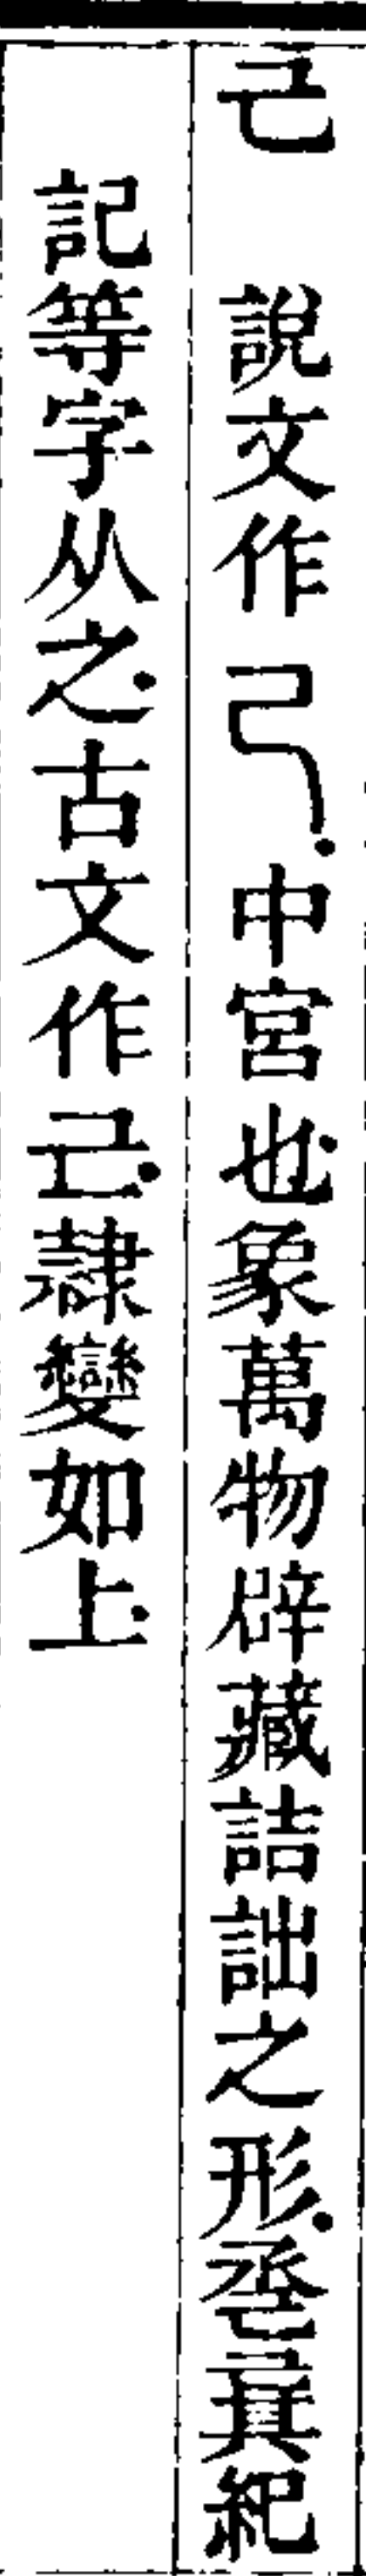 己 說文作己.中宮也象萬物辟藏詰詘之形.巹㠱紀
記等字从之.古文作己.隸變如上.